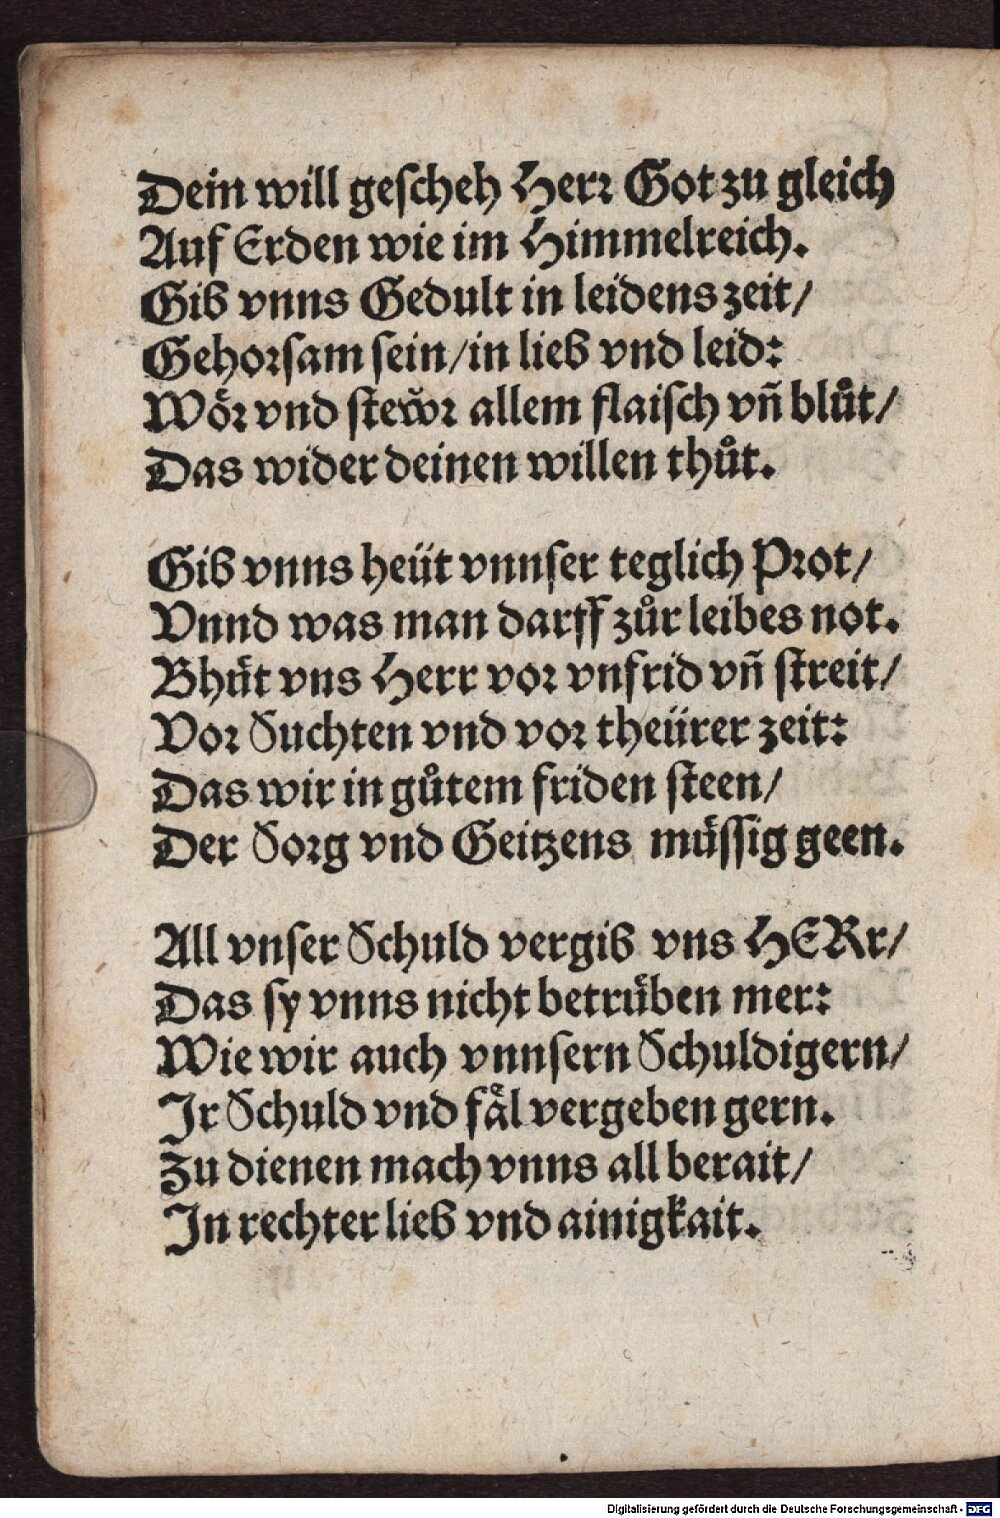 Dein will geſcheh Herꝛ Got zu gleich
Auf Erden wie im Himmelreich.
Gib vnns Gedult in leidens zeit/
Gehoꝛſam ſein/in lieb vnd leid:
Woͤꝛ vnd ſteẅꝛ allem flaiſch vñ bluͦt/
Das wider deinen willen thuͦt.

Gib vnns heüt vnnſer teglich Pꝛot/
Vnnd was man darff zuͦr leibes not.
Bhuͤt vns Herr voꝛ vnfrid vñ ſtreit/
Voꝛ Suchten vnd voꝛ theürer zeit:
Das wir in guͦtem friden ſteen/
Der Soꝛg vnd Geitzens muͤſſig geen.

All vnſer Schuld vergib vns HERr/
Das ſy vnns nicht betruͤben mer:
Wie wir auch vnnſern Schuldigern/
Jr Schuld vnd faͤl vergeben gern.
Zu dienen mach vnns all berait/
Jn rechter lieb vnd ainigkait.

Digitalisierung gefördert durch die Deutsche Forschungsgemeinschaft - DFG